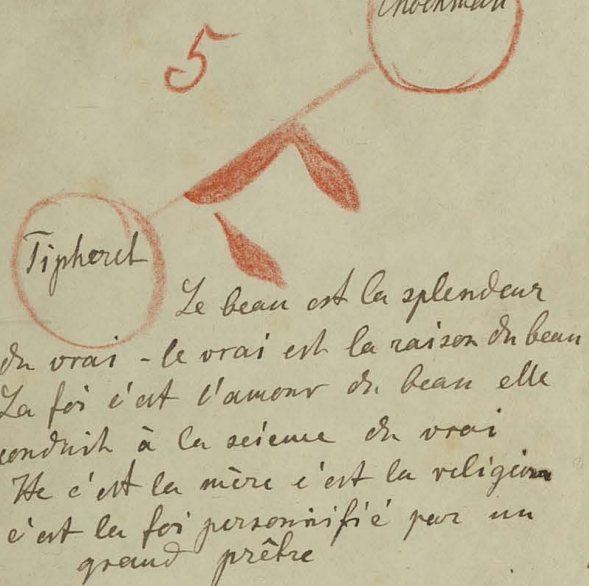 Chockmah
5
Tipheret
Le beau est la splendeur
du vrai - le vrai est la raison du beau
La foi c'est l'amour du beau elle
conduit à la science du vrai
He c'est la mère c'est la religion
c'est la foi personnifié par un
grand prêtre